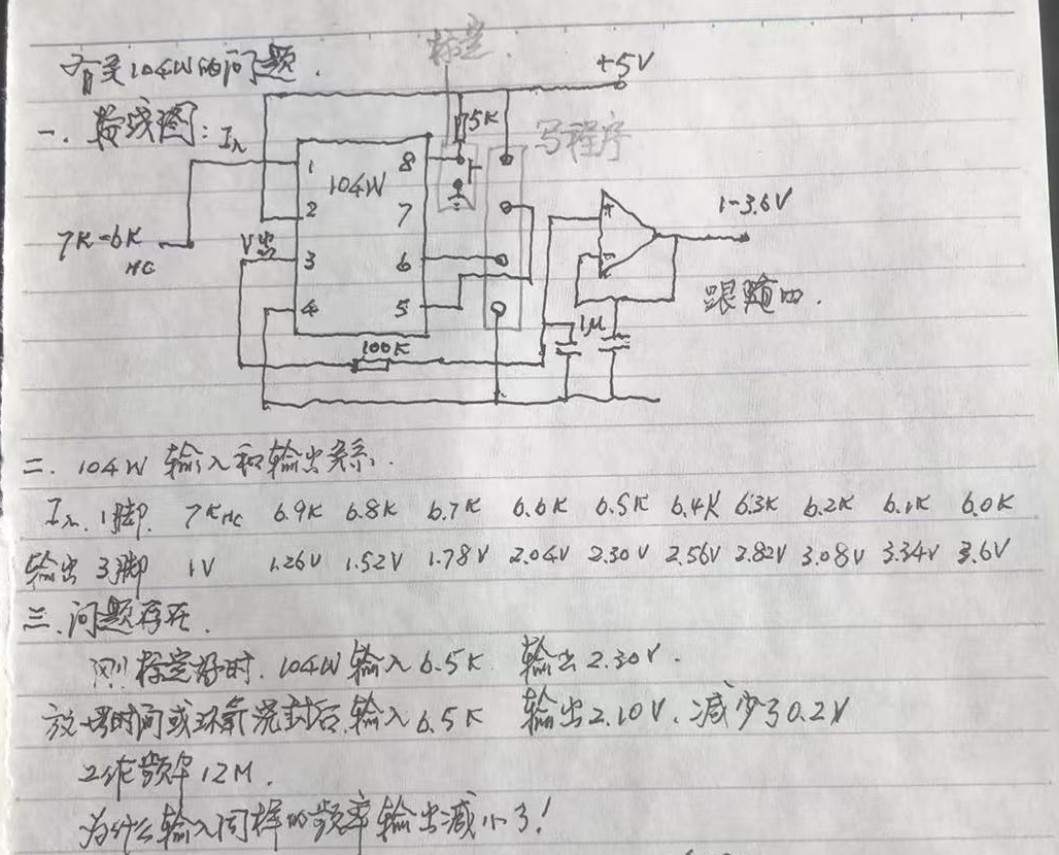 有关104W的问题.
标定.
+5V
一. 接线图: In
75K
写程序
1 104W 8
2 7
3 6
4 5
7K-6K
HC
V出
1-3.6V
跟随四.
1μ
100K
二. 104W 输入和输出关系.
In. 1脚. 7KHC 6.9K 6.8K 6.7K 6.6K 6.5K 6.4K 6.3K 6.2K 6.1K 6.0K
输出 3脚 1V 1.26V 1.52V 1.78V 2.04V 2.30V 2.56V 2.82V 3.08V 3.34V 3.6V
三. 问题存在.
刚标定好时. 104W输入6.5K 输出2.30V.
放一段时间或环氧浇封后.输入6.5K 输出2.10V、减少了0.2V
工作频率12M.
为什么输入同样的频率输出减小了!